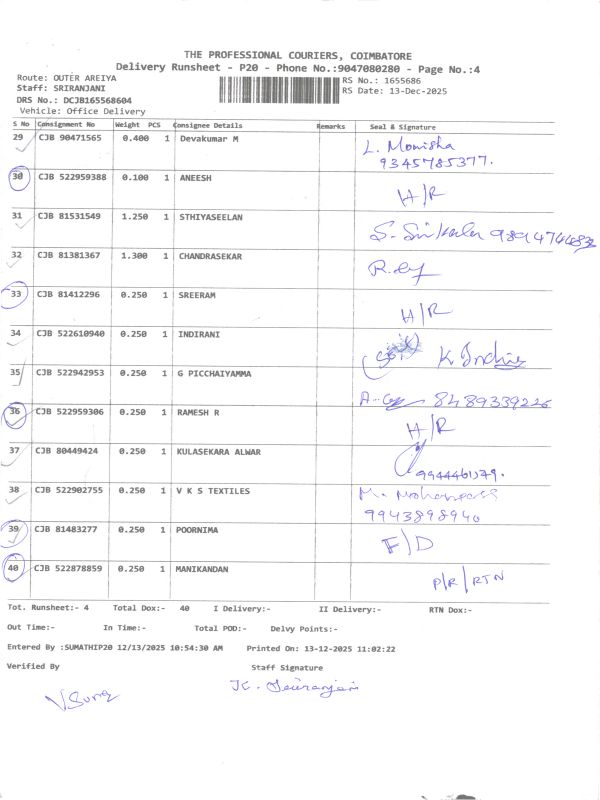 THE PROFESSIONAL COURIERS, COIMBATORE
Delivery Runsheet - P20 - Phone No.:9047080280 - Page No.:4
Route: OUTER AREIYA
RS No.: 1655686
Staff: SRIRANJANI
RS Date: 13-Dec-2025
DRS No.: DCJB165568604
Vehicle: Office Delivery
S No Consignment No Weight PCS Consignee Details Remarks Seal & Signature
29 CJB 90471565 0.400 1 Devakumar M L. Monisha
9345785377.
30 CJB 522959388 0.100 1 ANEESH H/R
31 CJB 81531549 1.250 1 STHIYASEELAN
32 CJB 81381367 1.300 1 CHANDRASEKAR
33 CJB 81412296 0.250 1 SREERAM H/R
34 CJB 522610940 0.250 1 INDIRANI
35 CJB 522942953 0.250 1 G PICCHAIYAMMA 8489339226
36 CJB 522959306 0.250 1 RAMESH R H/R
37 CJB 80449424 0.250 1 KULASEKARA ALWAR
38 CJB 522902755 0.250 1 V K S TEXTILES
9943898940
39 CJB 81483277 0.250 1 POORNIMA F/D
40 CJB 522878859 0.250 1 MANIKANDAN P/R/RTN
Tot. Runsheet:- 4 Total Dox:- 40 I Delivery:- II Delivery:- RTN Dox:-
Out Time:- In Time:- Total POD:- Delvy Points:-
Entered By :SUMATHIP20 12/13/2025 10:54:30 AM Printed On: 13-12-2025 11:02:22
Verified By Staff Signature